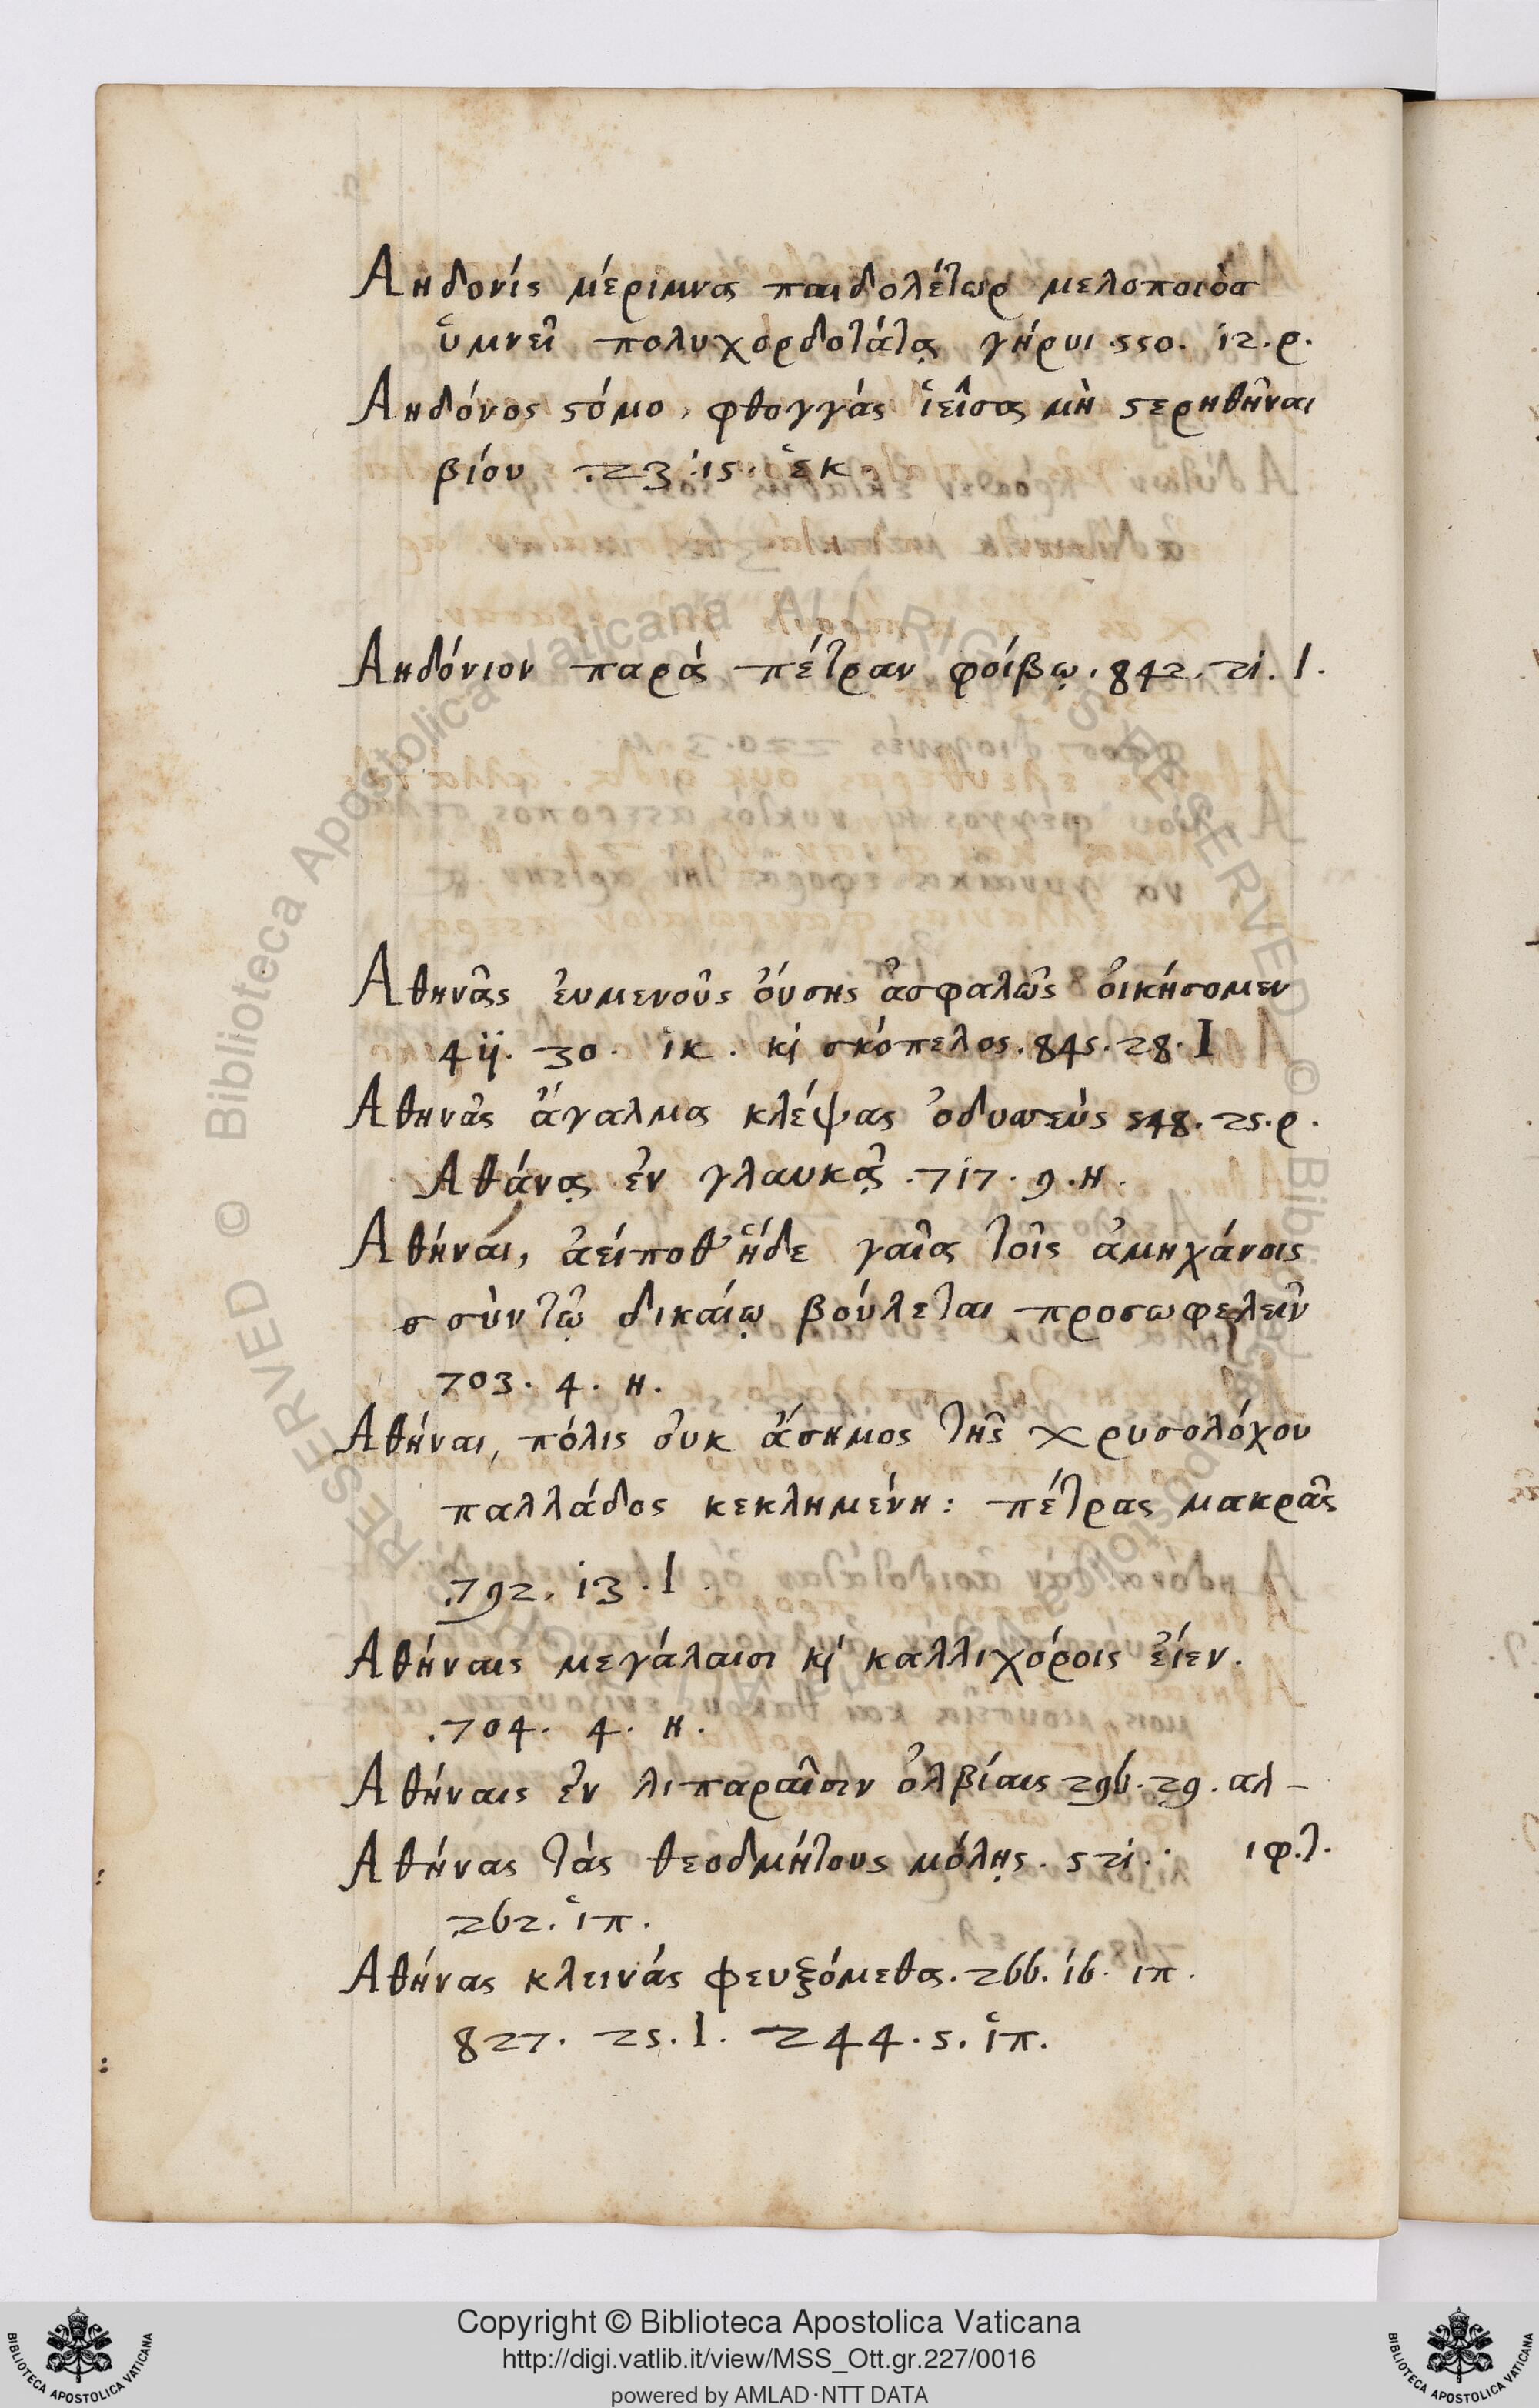 Αηδονίς μέριμνας παιδολέτωρ μελοποιὸσ
ὑμνεῖ πολυχορδοτάτᾳ γήρυι.550. 12.ρ.
Αηδόνος ϛόμο, φθογγάς ἱεῖσα μὴ ϛερηθῆναι
βίου .23.15. ἑκ
Αηδόνιον παρὰ πέτραν φοίβῳ.842.21.Ι.
Αθηνᾶς ἐυμενοῦς ὀύσης ἀσφαλῶς ὀικήσομεν
411. 30. ἱκ. κὶ σκόπελος.845.28.Ι
Αθηνᾶς ἄγαλμα κλέψας ὀδυσσεὺς 548.25.ρ.
Αθάνᾳ ἐν γλαυκᾷ.717.9.Η.
Αθήναι, ἀείποθ' ἥδε γαῖα τοῖς ἀμηχάνοις
σσὺν τῷ δικαίῳ βούλεται προσωφελεῖν
703. 4. Η.
Αθήναι, πόλις ὀυκ ἄσημος τῆς χρυσολόχου
παλλάδος κεκλημένη: πέτρας μακρᾶς
.792. 13.Ι.
Αθήναις μεγάλαισι κὶ καλλιχόροις ἐίεν.
.704. 4. Η.
Αθήναις ἐν λιπαραῖσιν ὀλβίαις 296.29. αλ-
Αθήνας τάς θεοδμήτους μόλῃς. 521. ιφ.τ.
262. ἱπ.
Αθήνας κλεινάς φευξόμεθα.266.16. ιπ.
827. 25.Ι. 244.5. ἱπ.
Copyright © Biblioteca Apostolica Vaticana
http://digi.vatlib.it/view/MSS_Ott.gr.227/0016
powered by AMLAD·NTT DATA